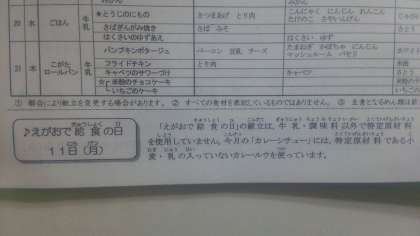 みかん
20 水 ごはん 牛乳 ★とうじのにもの さつまあげ とり肉 こんにゃく にんじん れんこん
たけのこ さやいんげん
さばぎんがみ焼き さば みそ
はくさいのゆずあえ はくさい ゆず
21 木 こがたロールパン 牛乳 パンプキンポタージュ ベーコン 豆乳 チーズ たまねぎ かぼちゃ にんじん
マッシュルーム パセリ
フライドチキン とり肉
キャベツのサワーづけ キャベツ
★米粉のチョコケーキ
いちごのケーキ
① 都合により献立を変更する場合があります。 ② すべての食材を表記しているものではありません。 ③
♪えがおで給食の日
11日(月)
「えがおで給食の日」の献立は、牛乳・調味料以外で特定原材料
を使用していません。今月の「カレーシチュー」には、特定原材料である小
麦・乳の入っていないカレールウを使っています。